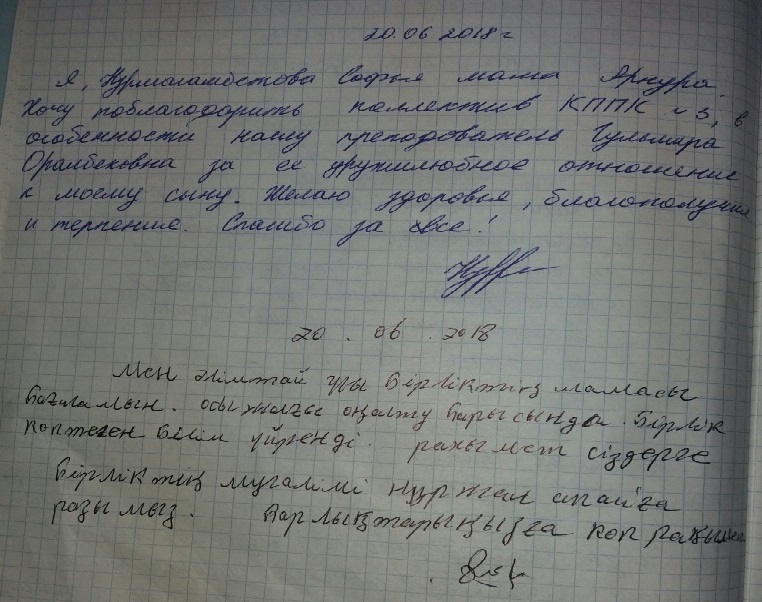 20.06 2018 г
Я, Нурмагамбетова Софья мама Ярнура.
Хочу поблагодарить коллектив КППК № 3, в
особенности нашу преподаватель Гульмира
Оралбековна за ее дружилюбное отношение
к моему сыну. Желаю здоровья, благополучия
и терпение. Спасибо за все!
20.06.2018
Мен Әлімтай ұлы Бірліктің мамасы
осы жолғы оңалту барысында. Бірлік
көптеген білім үйренді. рахымет сіздерге
Бірліктің мугалімі нұржан апайға
разымыз. Барлықтарыңызға көп